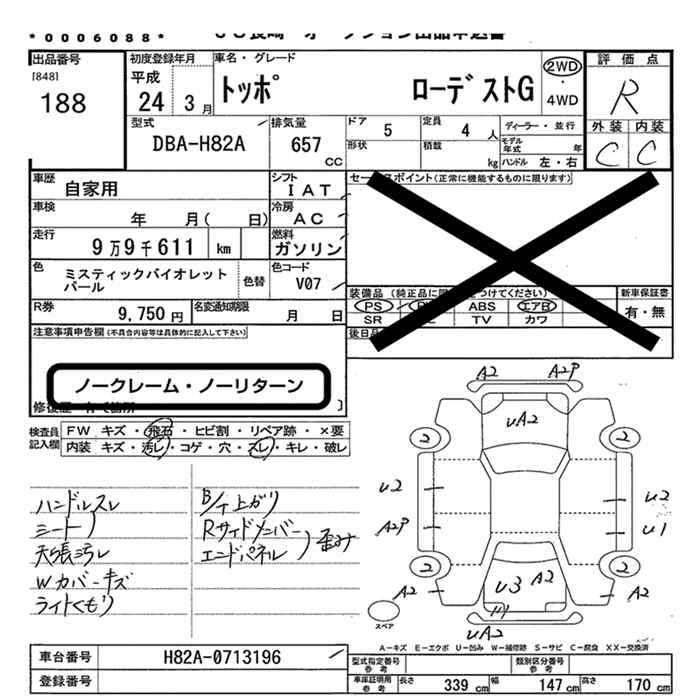 *0006088*
出品番号
[848]
188
初度登録年月
平成
24 3月
車名・グレード
トッポ ローデストG
2WD
・
4WD
評価点
R
外装 内装
C C
型式
DBA-H82A
排気量
657
CC
ドア 5
定員 4 人
ディーラー・並行
形状
積載 kg
モデル年式 年
ハンドル 左・右
車歴 自家用
シフト IAT
車検 年 月( 日)
冷房 AC
走行 9万9千611 km
燃料 ガソリン
色 ミスティックバイオレットパール
色替
色コード V07
R券 9,750円
名変通知期限 月 日
セールスポイント(正常に機能するものに限ります)
装備品 (純正品に
つけてください)
PS ABS エアB
SR TV カワ
新車保証書
有・無
後日品
注意事項申告欄(不具合内容等は具体的に記入して下さい)
ノークレーム・ノーリターン
検査員記入欄
FW キズ・飛石・ヒビ割・リペア跡・×要
内装 キズ・汚レ・コゲ・穴・スレ・キレ・破レ
ハンドルスレ
シート
天張汚レ
Wカバーキズ
ライトくもり
B/下上がり
Rサイドメンバー
エンドパネル
歪み
A2 A2P
UA2
2 2
U2 U2
A2P U1
2 2
A2 U3 A2 A2
UA2
スペア
A-キズ E-エクボ U-凹み W-補修跡 S-サビ C-腐食 XX-交換済
車台番号 H82A-0713196
登録番号
型式指定番号参考
類別区分番号参考
車庫証明用参考 長さ 339 cm 幅 147 cm 高さ 170 cm